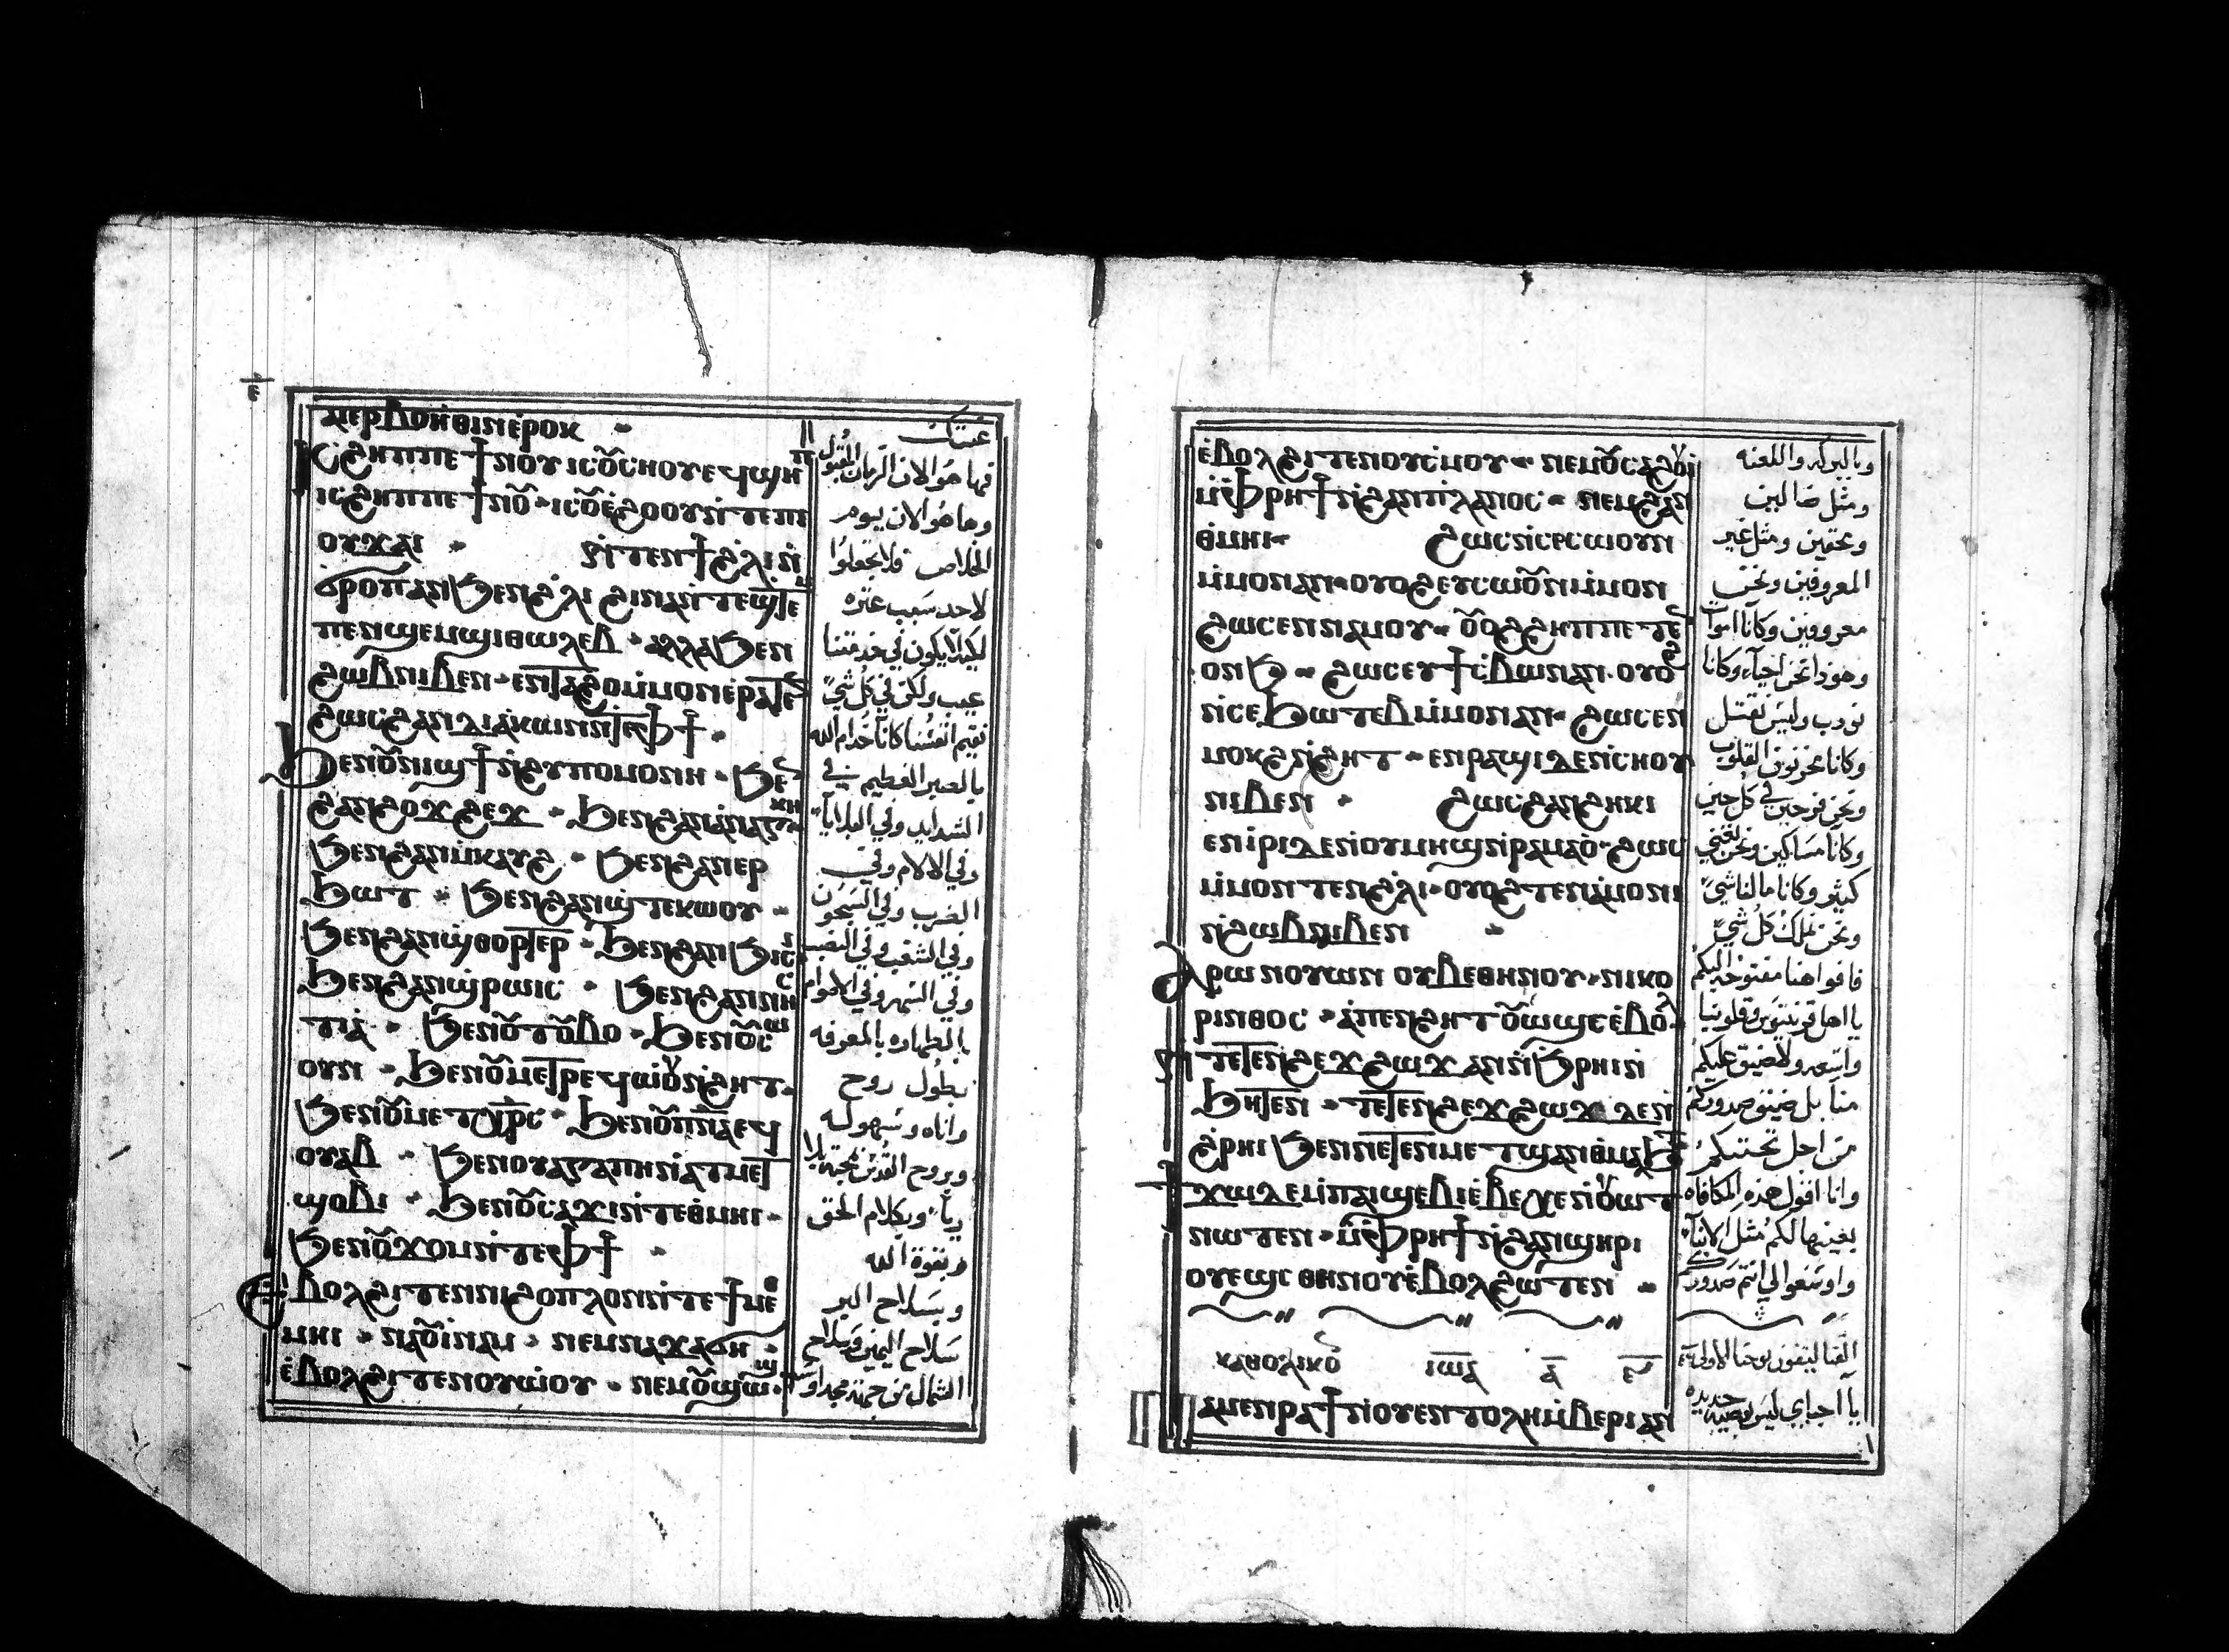 ⲁⲓⲉⲣⲃⲟⲏⲑⲓⲛ ⲉⲣⲟⲕ
ⲓⲥϩⲏⲡⲡⲉ ϯⲛⲟⲩ ⲓⲥ ⲟⲩⲥⲏⲟⲩ ⲉϥϣⲏⲡ
ⲓⲥϩⲏⲡⲡⲉ ϯⲛⲟⲩ ⲓⲥ ⲟⲩⲉϩⲟⲟⲩ ⲛⲧⲉ ⲡⲓ
ⲟⲩϫⲁⲓ ⲛⲧⲉⲛϯ ϩⲗⲓ ⲛ
ϭⲣⲟⲡ ⲁⲛ ϧⲉⲛ ϩⲗⲓ ϩⲓⲛⲁ ⲛⲧⲉϣⲧⲉⲙ
ⲡⲉⲛϣⲉⲙϣⲓ ⲑⲱⲗⲉⲃ ⲁⲗⲗⲁ ϧⲉⲛ
ϩⲱⲃ ⲛⲓⲃⲉⲛ ⲉⲛⲧⲁϩⲟ ⲙⲙⲟⲛ ⲉⲣⲁⲧⲉⲛ
ϩⲱⲥ ϩⲁⲛⲇⲓⲁⲕⲱⲛ ⲛⲧⲉ ⲫϯ
ϧⲉⲛ ⲟⲩⲛⲓϣϯ ⲛϩⲩⲡⲟⲙⲟⲛⲏ ϧⲉⲛ
ϩⲁⲛϩⲟϫϩⲉϫ ϧⲉⲛ ϩⲁⲛⲁⲛⲁⲅⲕⲏ
ϧⲉⲛ ϩⲁⲛⲙⲕⲁⲩϩ ϧⲉⲛ ϩⲁⲛⲉⲣ
ϧⲱⲧ ϧⲉⲛ ϩⲁⲛϣⲧⲉⲕⲱⲟⲩ
ϧⲉⲛ ϩⲁⲛϣⲑⲟⲣⲧⲉⲣ ϧⲉⲛ ϩⲁⲛϧⲓⲥⲓ
ϧⲉⲛ ϩⲁⲛϣⲣⲱⲓⲥ ϧⲉⲛ ϩⲁⲛⲛⲏⲥ
ⲧⲓⲁ ϧⲉⲛ ⲟⲩⲧⲟⲩⲃⲟ ϧⲉⲛ ⲟⲩⲥⲱ
ⲟⲩⲛ ϧⲉⲛ ⲟⲩⲙⲉⲧⲣⲉϥⲱⲟⲩ ⲛϩⲏⲧ
ϧⲉⲛ ⲟⲩⲙⲉⲧⲭⲣⲥ ϧⲉⲛ ⲟⲩⲡⲛⲁ ⲉϥ
ⲟⲩⲁⲃ ϧⲉⲛ ⲟⲩⲁⲅⲁⲡⲏ ⲛⲁⲧⲙⲉⲧ
ϣⲟⲃⲓ ϧⲉⲛ ⲟⲩⲥⲁϫⲓ ⲛⲧⲉ ⲑⲙⲏⲓ
ϧⲉⲛ ⲟⲩϫⲟⲙ ⲛⲧⲉ ⲫϯ
ⲉⲃⲟⲗ ϩⲓⲧⲉⲛ ⲛⲓϩⲟⲡⲗⲟⲛ ⲛⲧⲉ ϯⲙⲉⲑ
ⲙⲏⲓ ⲛⲁⲟⲩⲓⲛⲁⲙ ⲛⲉⲙ ⲛⲁϫⲁϭⲏ
ⲉⲃⲟⲗ ϩⲓⲧⲉⲛ ⲟⲩⲱⲟⲩ ⲛⲉⲙ ⲟⲩϣⲱϣ
فها هوا الان الزمان المقبول
وها هوا الان يوم
الخلاص فلا تجعلوا
لاحد سبب عثره
لكيلا يكون في خدمتنا
عيب ولكن في كل شيء
نقيم انفسنا كاننا خدام الله
بالصبر العظيم في
الشدايد وفي البلايا
وفي الالام وفي
الضرب وفي السجون
وفي الشغب وفي التعب
وفي السهر وفي الاصوام
بالطهاره بالمعرفه
بطول روح
واناه وسهوله
وبروح القدس بمحبة بلا
ريا وبكلام الحق
وبقوة الله
وبسلاح البر
سلاح اليمين وسلاح
الشمال
ⲉⲃⲟⲗ ϩⲓⲧⲉⲛ ⲟⲩⲥⲙⲟⲩ ⲛⲉⲙ ⲟⲩⲥⲁϩⲟⲩⲓ
ⲙⲫⲣⲏϯ ⲛϩⲁⲛⲡⲗⲁⲛⲟⲥ ⲛⲉⲙ ϩⲁⲛ
ⲑⲙⲏⲓ ϩⲱⲥ ⲛⲥⲉⲥⲱⲟⲩⲛ
ⲙⲙⲟⲛ ⲁⲛ ⲟⲩⲟϩ ⲉⲩⲥⲱⲟⲩⲛ ⲙⲙⲟⲛ
ϩⲱⲥ ⲉⲛⲛⲁⲙⲟⲩ ⲟⲩⲟϩ ϩⲏⲡⲡⲉ ⲧⲉⲛ
ⲟⲛϧ ϩⲱⲥ ⲉⲩϯⲥⲃⲱ ⲛⲁⲛ ⲟⲩⲟϩ
ⲛⲥⲉϧⲱⲧⲉⲃ ⲙⲙⲟⲛ ⲁⲛ ϩⲱⲥ ⲉⲛ
ⲙⲟⲕϩ ⲛϩⲏⲧ ⲉⲛⲣⲁϣⲓ ⲇⲉ ⲛⲥⲏⲟⲩ
ⲛⲓⲃⲉⲛ ϩⲱⲥ ϩⲁⲛϩⲏⲕⲓ
ⲉⲛⲓⲣⲓ ⲇⲉ ⲛⲟⲩⲙⲏϣ ⲛⲣⲁⲙⲁⲟ ϩⲱⲥ
ⲙⲙⲟⲛ ⲧⲉⲛ ϩⲗⲓ ⲟⲩⲟϩ ⲧⲉⲛⲁⲙⲟⲛⲓ
ⲛϩⲱⲃ ⲛⲓⲃⲉⲛ
ⲣⲱⲛ ⲟⲩⲏⲛ ⲟⲩⲃⲉ ⲑⲏⲛⲟⲩ ⲛⲓⲕⲟ
ⲣⲓⲛⲑⲟⲥ ⲁⲡⲉⲛϩⲏⲧ ⲟⲩⲱϣⲥ ⲉⲃⲟⲗ
ⲛⲧⲉⲧⲉⲛϩⲉϫϩⲱϫ ⲁⲛ ⲛϧⲣⲏⲓ ⲛ
ϧⲏⲧⲉⲛ ⲧⲉⲧⲉⲛϩⲉϫϩⲱϫ ⲇⲉ ⲛ
ϩⲣⲏⲓ ϧⲉⲛ ⲛⲉⲧⲉⲛⲙⲉⲧϣⲁⲛⲑⲙⲁϧⲧ
ϯϫⲱ ⲇⲉ ⲙⲡⲁⲓϣⲉⲃⲓⲉ ⲃⲉⲭⲉ ⲛⲟⲩⲱⲧ
ⲛⲱⲧⲉⲛ ⲙⲫⲣⲏϯ ⲛϩⲁⲛϣⲏⲣⲓ
ⲟⲩⲉϣⲥ ⲑⲏⲛⲟⲩ ⲉⲃⲟⲗ ϩⲱⲧⲉⲛ
ⲕⲁⲑⲟⲗⲓⲕⲟⲛ ⲓⲱⲁ ⲁ
ⲛⲁⲙⲉⲛⲣⲁϯ ⲛⲟⲩⲉⲛⲧⲟⲗⲏ ⲙⲃⲉⲣⲓ ⲁⲛ
وبالبركه واللعنه
ومثل ضالين
ومحقين ومثل غير
المعروفين ونحن
معروفين وكاننا اموات
وهوذا نحن احياء وكاننا
نودب وليس نقتل
وكاننا محزونين القلوب
ونحن فرحين في كل حين
وكاننا مساكين ونحن نغني
كثير وكاننا ما لنا شيء
ونحن نملك كل شيء
فافواهنا مفتوحه اليكم
يا اهل قرنتيه وقلوبنا
واسعه ولا ضيق عليكم
منا بل ضيق صدوركم
من اجل تحننكم
وانا اقول هذه المكافاه
بعينها لكم مثل الابناء
واوسعوا لي انتم صدوركم
يا احباي ليس وصيه جديده